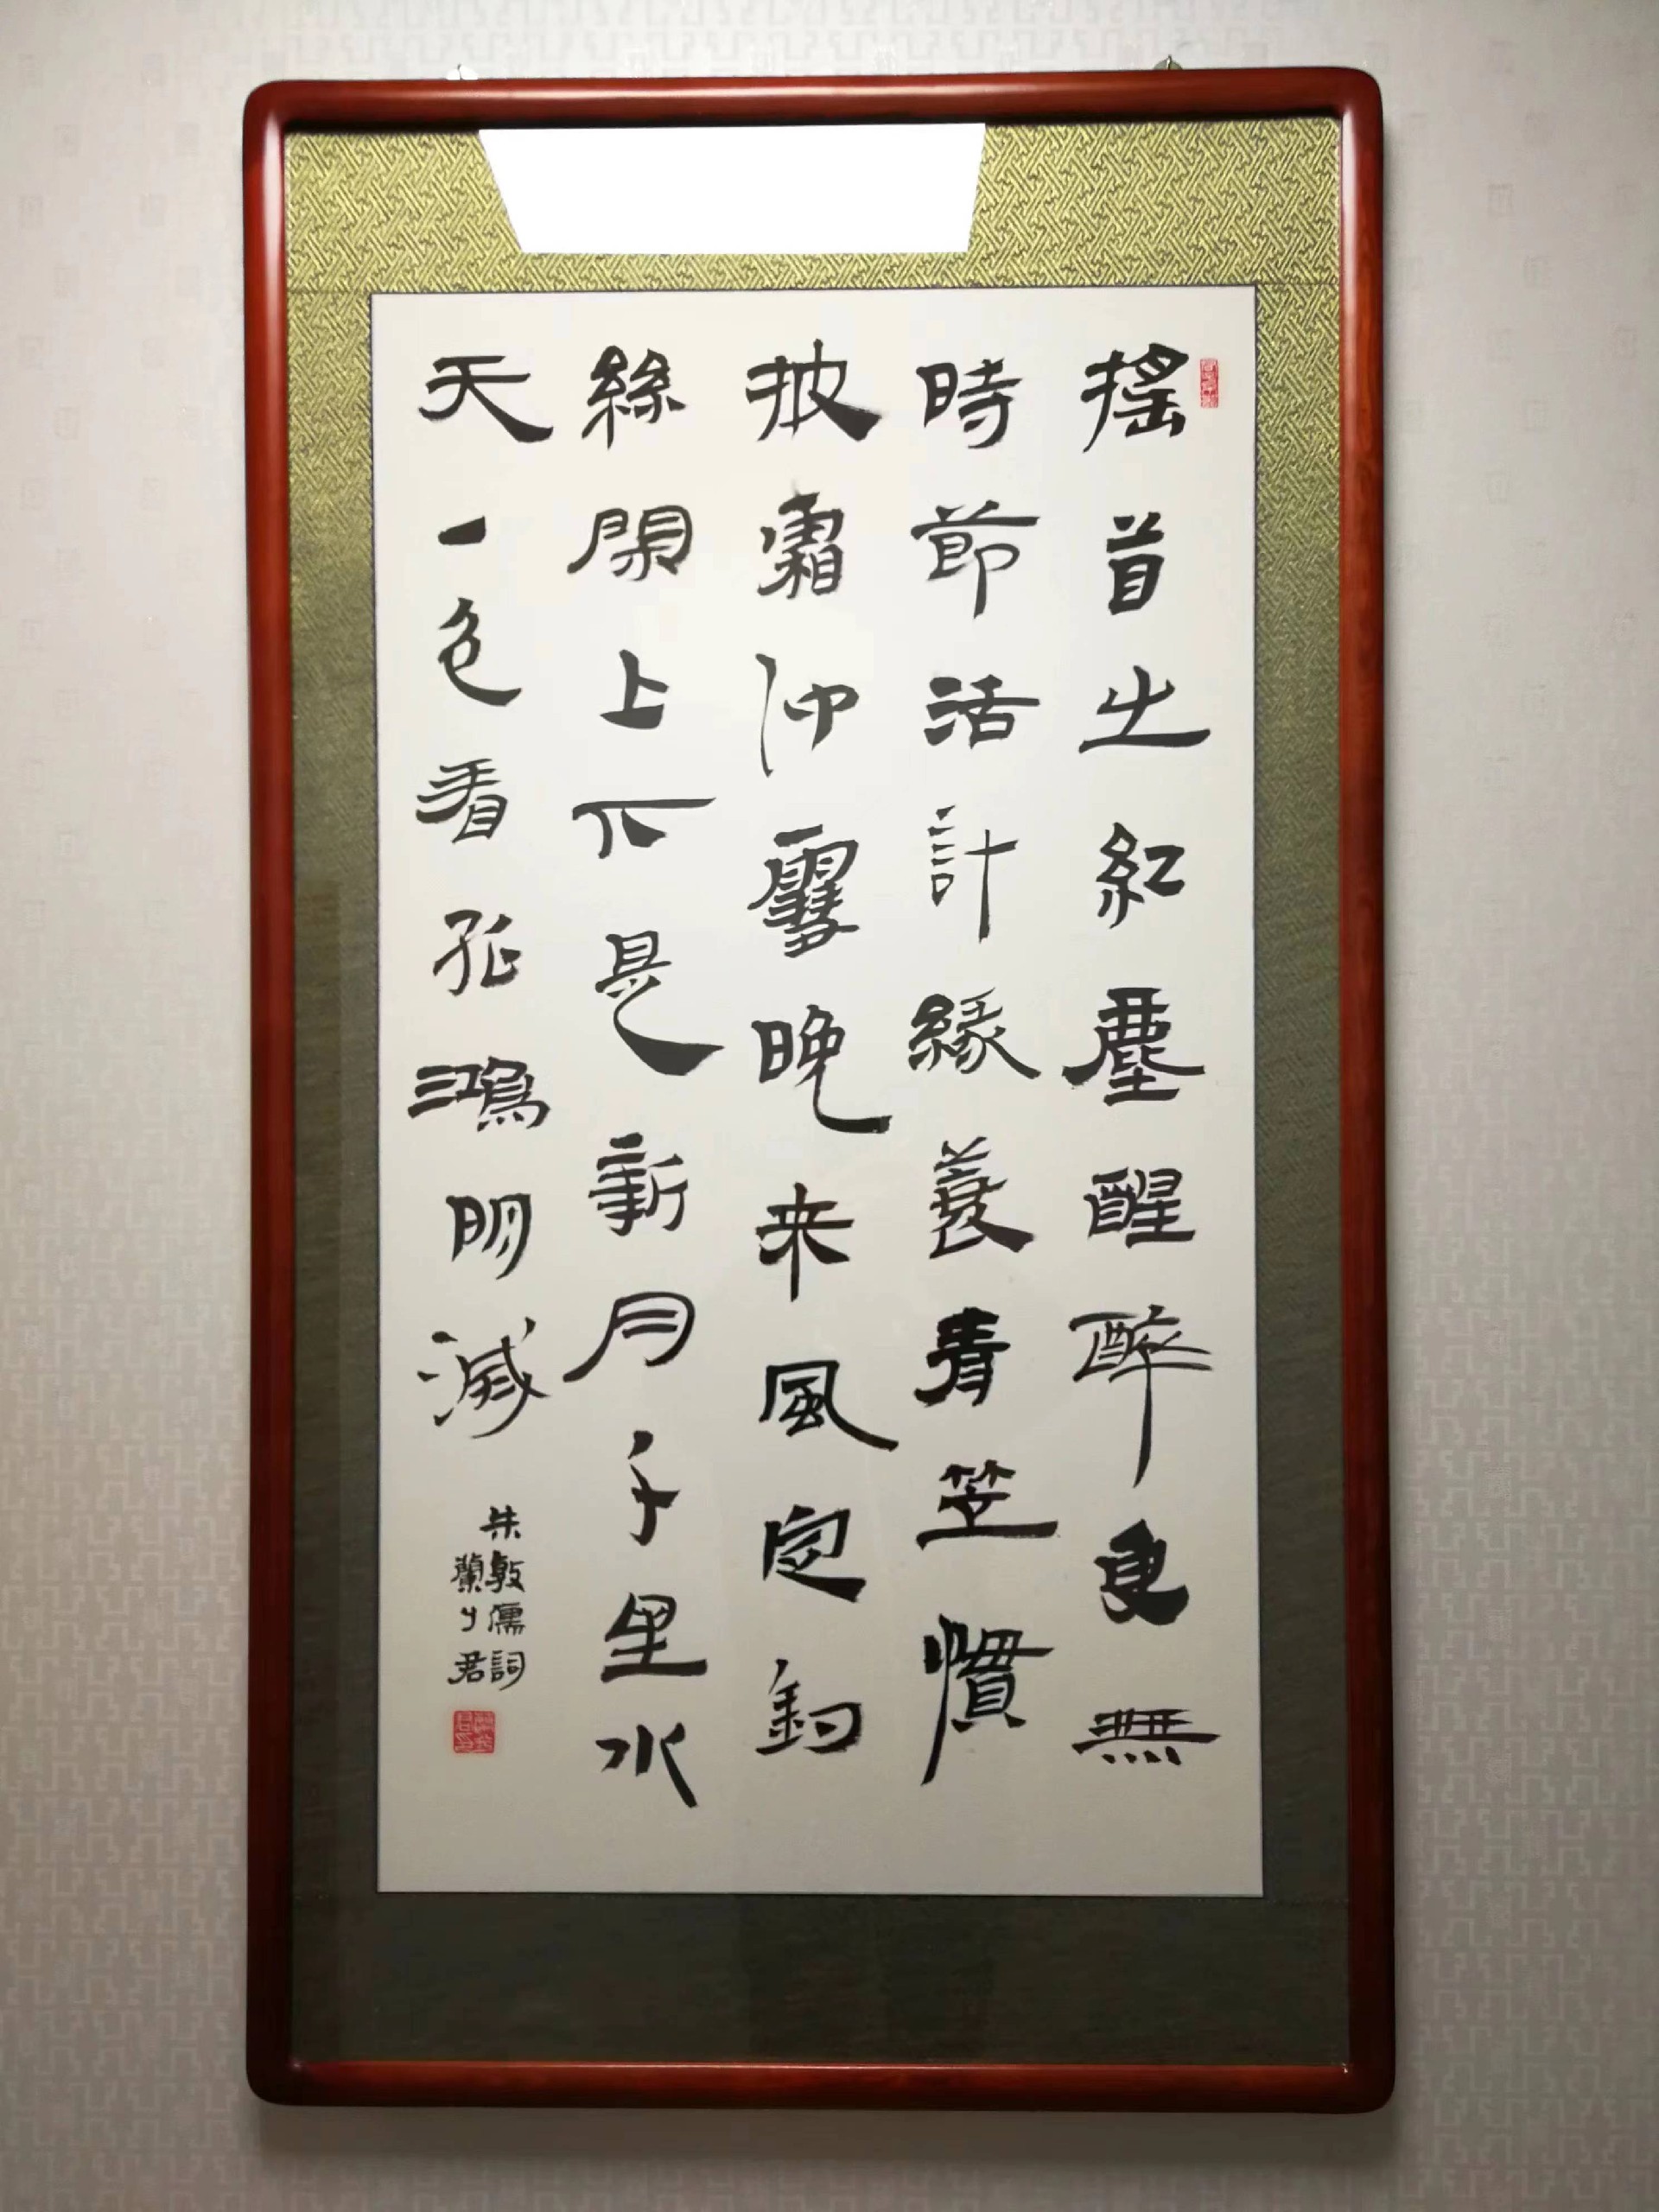 搖首出紅塵醒醉更無
時節活計緑蓑青笠慣
披霜沖雪晚来風定釣
絲閑上下是新月千里水
天一色看孤鴻明滅
朱敦儒詞
蘭
君